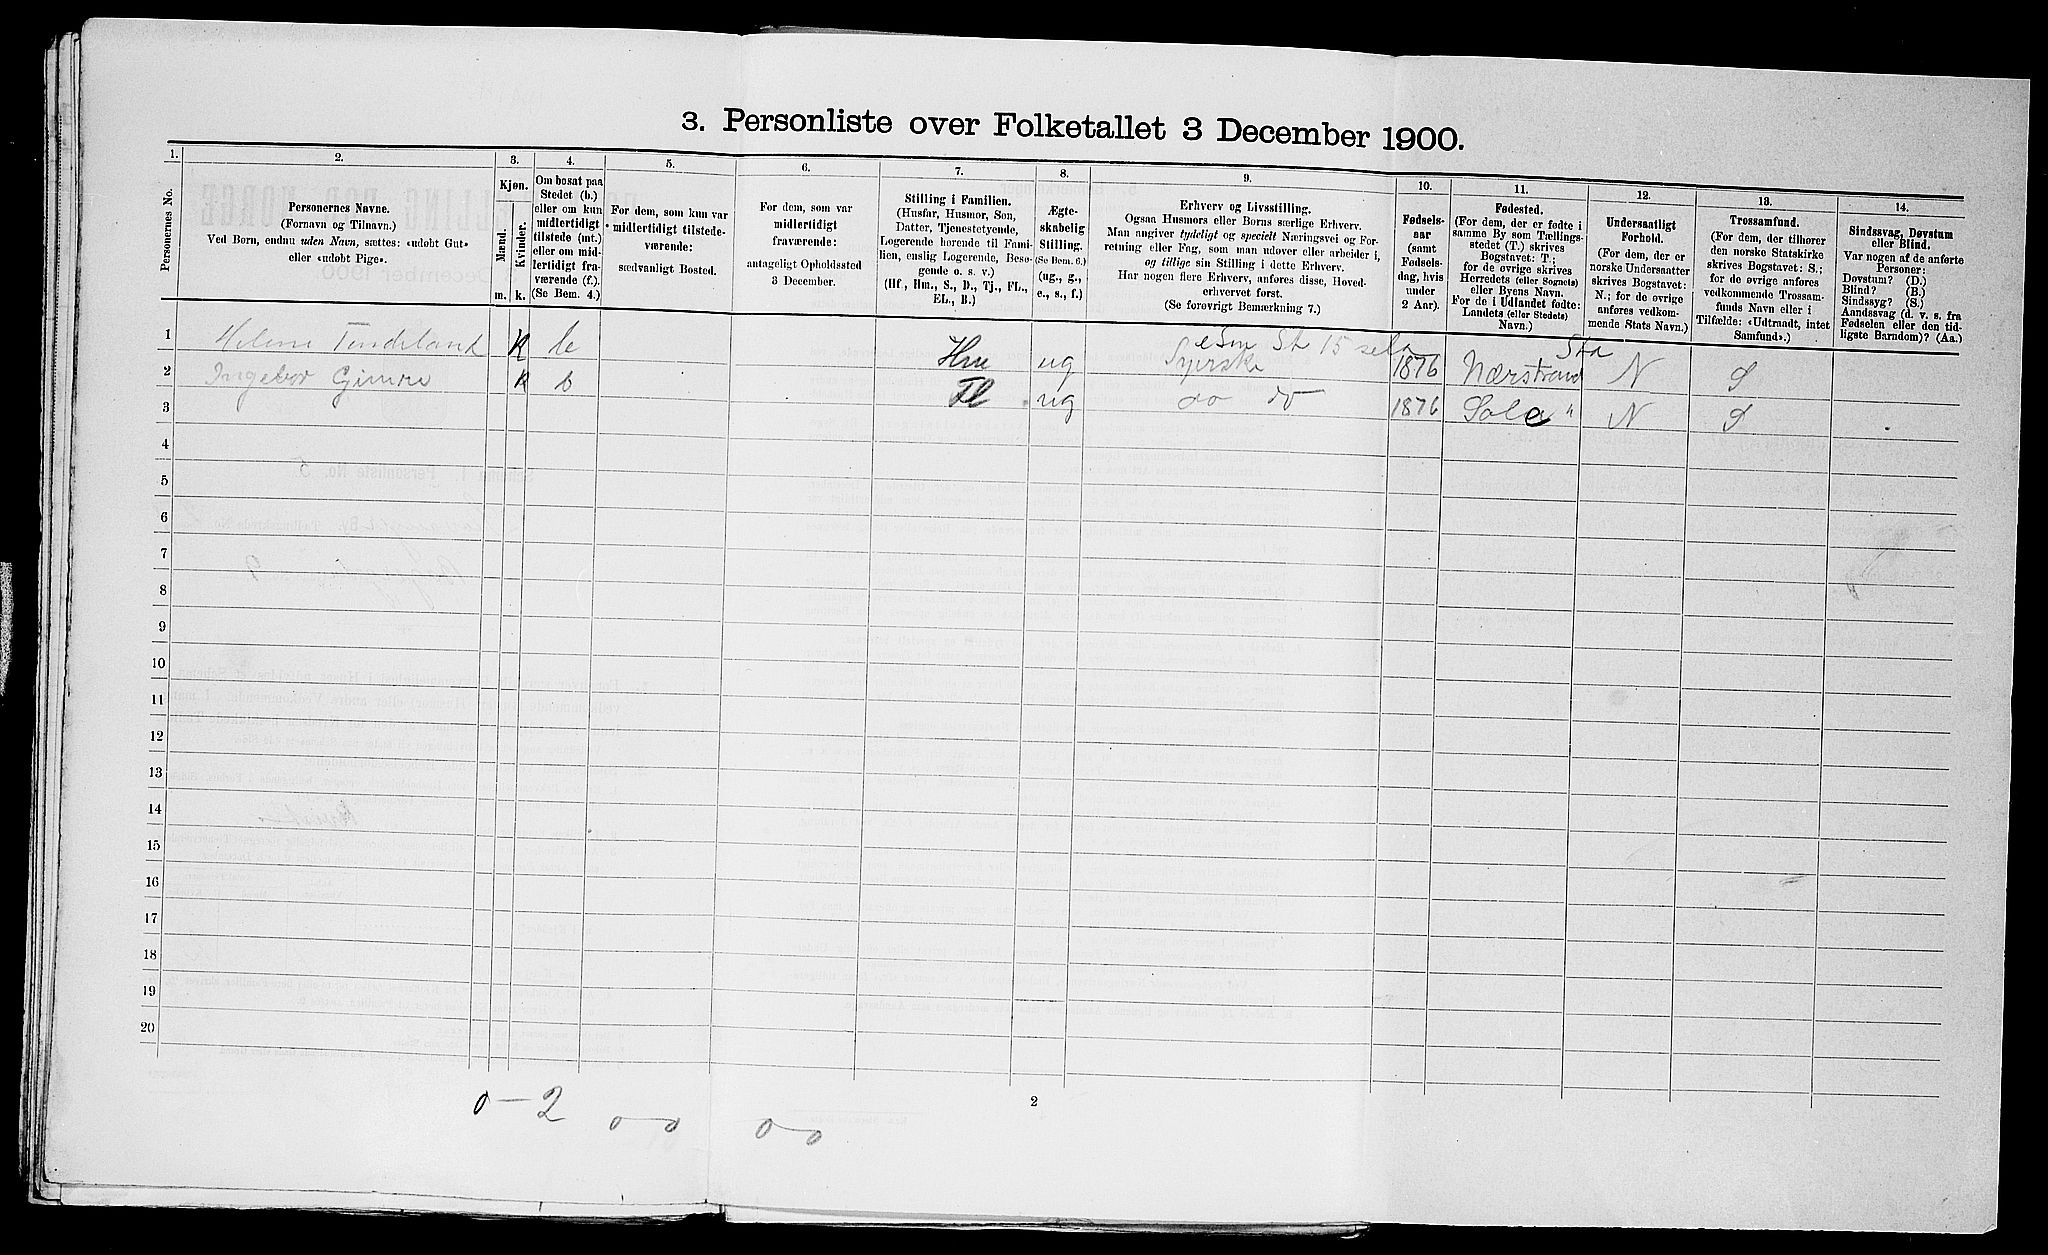 3. Personliste over Folketallet 3 December 1900.
1. 2. 3. 4. 5. 6. 7. 8. 9. 10. 11. 12. 13. 14.
Personernes No.
Personernes Navne.
(Fornavn og Tilnavn.)
Ved Børn, endnu uden Navn, sættes: «udøbt Gut»
eller «udøbt Pige».
Kjøn.
Mænd.
Kvinder.
m. k.
Om bosat paa
Stedet (b.)
eller om kun
midlertidigt
tilstede (mt.)
eller om mid-
lertidigt fra-
værende (f.).
(Se Bem. 4.)
For dem, som kun var
midlertidigt tilstede-
værende:
sædvanligt Bosted.
For dem, som var
midlertidigt
fraværende:
antageligt Opholdssted
3 December.
Stilling i Familien.
(Husfar, Husmor, Søn,
Datter, Tjenestetyende,
Logerende hørende til Fami-
lien, enslig Logerende, Besø-
gende o. s. v.)
(Hf., Hm., S., D., Tj., FL.,
EL., B.)
Ægte-
skabelig
Stilling.
(Se Bem. 6.)
(ug., g.,
e., s., f.)
Erhverv og Livsstilling.
Ogsaa Husmors eller Børns særlige Erhverv.
Man angiver tydeligt og specielt Næringsvei og For-
retning eller Fag, som man udøver eller arbeider i,
og tillige sin Stilling i dette Erhverv.
Har nogen flere Erhverv, anføres disse, Hoved-
erhvervet først.
(Se forøvrigt Bemærkning 7.)
Fødsels-
aar
(samt
Fødsels-
dag, hvis
under
2 Aar).
Fødested.
(For dem, der er fødte i
samme By som Tællings-
stedet (T.) skrives
Bogstavet: T.;
for de øvrige skrives
Herredets (eller Sognets)
eller Byens Navn.
For de i Udlandet fødte:
Landets (eller Stedets)
Navn.)
Undersaatligt
Forhold.
(For dem, der er
norske Undersaatter
skrives Bogstavet:
N.; for de øvrige
anføres vedkom-
mende Stats Navn.)
Trossamfund.
(For dem, der tilhører
den norske Statskirke
skrives Bogstavet: S.;
for de øvrige anføres
vedkommende Trossam-
funds Navn eller i
Tilfælde: «Udtraadt, intet
Samfund».)
Sindssvag, Døvstum
eller Blind.
Var nogen af de anførte
Personer:
Døvstum? (D.)
Blind? (B.)
Sindssyg? (S.)
Aandssvag (d. v. s. fra
Fødselen eller den tid-
ligste Barndom)? (Aa.)
1 Helene Tendeland K b Hm ug Syerske 1876 Nærstrand Sta N S
2 Ingebor Gimre K b Fl ug do do 1876 Sola " N S
3
4
5
6
7
8
9
10
11
12
13
14
15
16
17
18
19
20
0 - 2 0 0 0 0
2